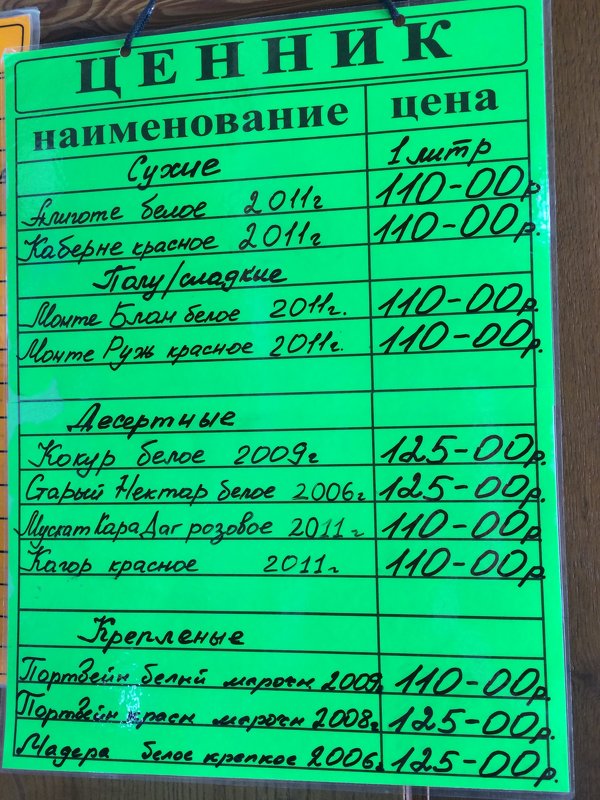 ЦЕННИК
наименование цена
Сухие 1 литр
Алиготе белое 2011г 110-00р.
Каберне красное 2011г 110-00р.
Полу/сладкие
Монте Блан белое 2011г. 110-00р.
Монте Руж красное 2011г. 110-00р.
Десертные
Кокур белое 2009г 125-00р.
Старый Нектар белое 2006г 125-00р.
Мускат Кара Даг розовое 2011г 110-00р.
Кагор красное 2011г 110-00р.
Крепленые
Портвейн белый марочн 2009г. 110-00р.
Портвейн красн марочн 2008г 125-00р.
Мадера белое крепкое 2006г. 125-00р.